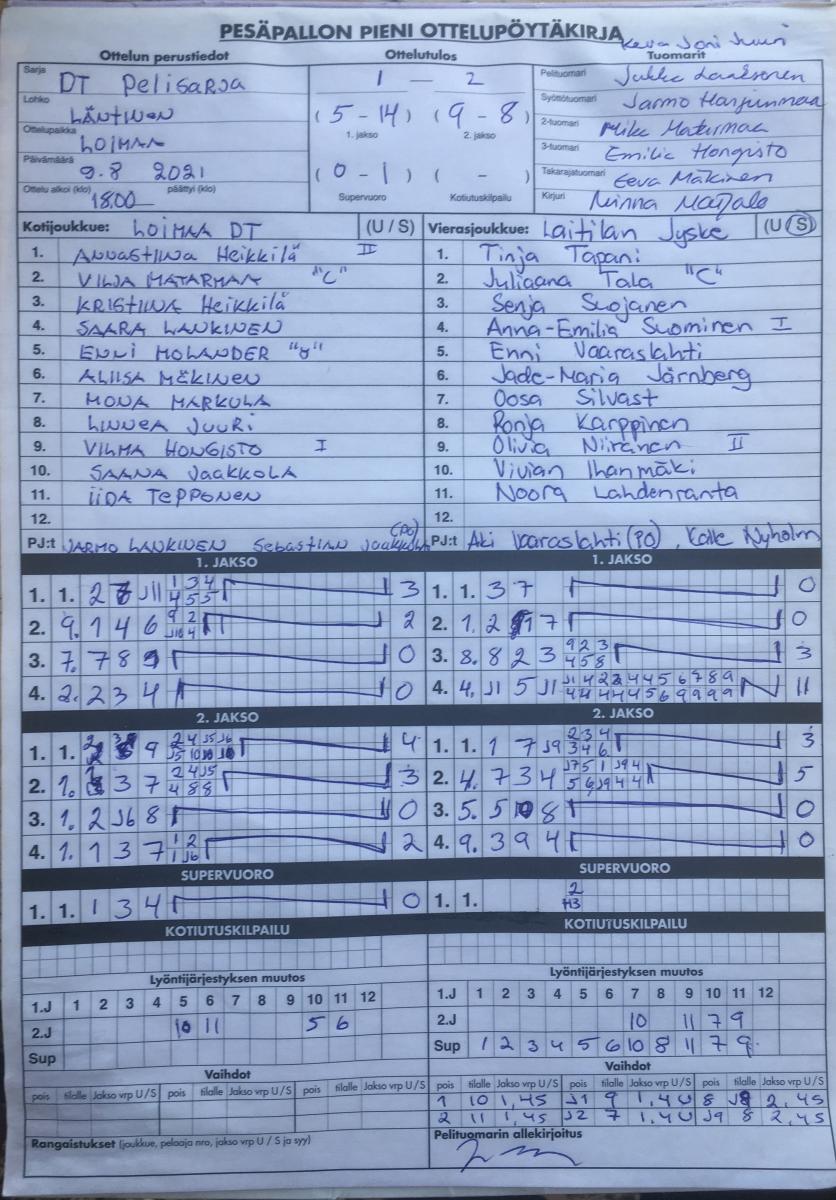 PESÄPALLON PIENI OTTELUPÖYTÄKIRJA
Keva Joni Juuri
Ottelun perustiedot Ottelutulos Tuomarit
Sarja DT Pelisarja
1 — 2
Pelituomari Jukka Laaksonen
Lohko LÄNTINEN
(5 - 14) (9 - 8)
1. jakso 2. jakso
Syöttötuomari Jarmo Harjunmaa
Ottelupaikka LOIMAA
2-tuomari Mika Matarmaa
Päivämäärä 9.8 2021
(0 - 1) ( - )
Supervuoro Kotiutuskilpailu
3-tuomari Emilia Hongisto
Takarajatuomari Eeva Mäkinen
Ottelu alkoi (klo) 18.00 päättyi (klo)
Kirjuri Minna Marjala
Kotijoukkue: LOIMAA DT (U / S)
1. ANNASTIINA Heikkilä II
2. VILJA MATARMAA "C"
3. KRISTIINA Heikkilä
4. SAARA LANKINEN
5. ENNI MOLANDER
6. ALIISA MÄKINEN
7. MONA MARKULA
8. LINNEA JUURI
9. VILMA HONGISTO I
10. SAANA JAAKKOLA
11. IIDA TEPPONEN
12.
PJ:t JARMO LANKINEN Sebastian Jaakkola (PO)
Vierasjoukkue: Laitilan Jyske (U / S)
1. Tinja Tapani
2. Juliaana Tala "C"
3. Senja Suojanen
4. Anna-Emilia Suominen I
5. Enni Vaaraslahti
6. Jade-Maria Järnberg
7. Oosa Silvast
8. Ronja Karppinen
9. Olivia Niiranen II
10. Vivian Ihanmäki
11. Noora Lahdenranta
12.
PJ:t Aki Vaaraslahti (PO), Kalle Nyholm
1. JAKSO
1. 1. 2 J11 1 3 4 4 5 5 3
2. 9. 1 4 6 9 2 J10 4 2
3. 7. 7 8 9 0
4. 2. 2 3 4 0
1. JAKSO
1. 1. 3 7 0
2. 1. 2 7 0
3. 8. 8 2 3 9 2 3 4 5 8 3
4. 4. J1 5 J1 11
2. JAKSO
1. 1. 9 4
2. 1. 3 7 2 4 J5 4 8 8 3
3. 1. 2 J6 8 0
4. 1. 1 3 7 1 2 1 J6 2
2. JAKSO
1. 1. 1 7 J9 2 3 4 3 4 6 3
2. 4. 7 3 4 5
3. 5. 5 8 0
4. 9. 3 9 4 0
SUPERVUORO
1. 1. 1 3 4 0
SUPERVUORO
1. 1. 2
KOTIUTUSKILPAILU
KOTIUTUSKILPAILU
Lyöntijärjestyksen muutos
1.J 1 2 3 4 5 6 7 8 9 10 11 12
2.J 10 11 5 6
Sup
Lyöntijärjestyksen muutos
1.J 1 2 3 4 5 6 7 8 9 10 11 12
2.J 10 11 7 9
Sup 1 2 3 4 5 6 10 8 11 7 9
Vaihdot
pois tilalle Jakso vrp U / S pois tilalle Jakso vrp U / S pois tilalle Jakso vrp U / S
Vaihdot
pois tilalle Jakso vrp U / S pois tilalle Jakso vrp U / S pois tilalle Jakso vrp U / S
1 10 1,4S J1 9 1,4U 8 J8 2,4S
2 11 1,4S J2 7 1,4U J9 8 2,4S
Rangaistukset (joukkue, pelaaja nro, jakso vrp U / S ja syy)
Pelituomarin allekirjoitus